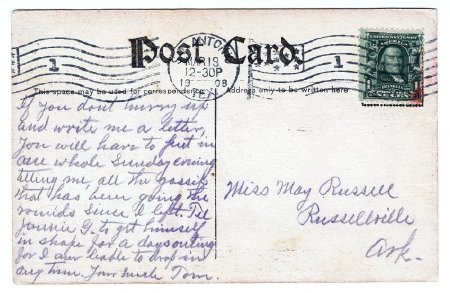 Post Card.
ANTON
MAR 18
12-30P
1908
TEX
1
1
This space may be used for correspondence
Address only to be written here
FRANKLIN
If you dont hurry up
and write me a letter,
You will have to put in
one whole Sunday evening
telling me all the gossip
that has been going the
rounds since I left. Tell
Jonnie G. to get himself
in shape for a days outing
for I am liable to drop in
any time. Your uncle Tom.
Miss May Russell
Russellville
Ark.